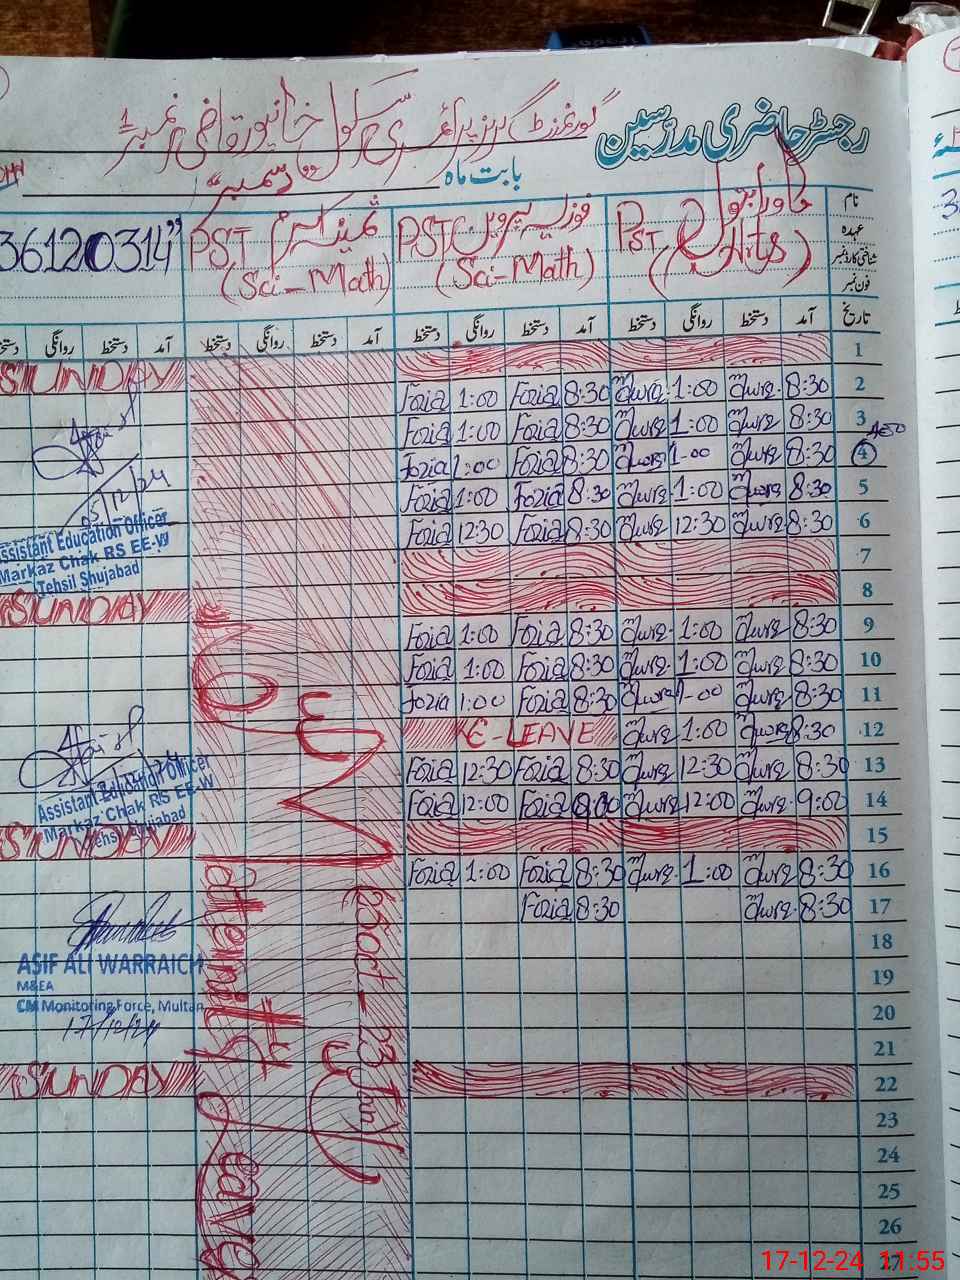 رجسٹر حاضری مدرسین
گورنمنٹ گرلز پرائمری سکول خانپور قاضی نمبر 1
بابت ماہ دسمبر
نام
عہدہ
شناختی کارڈ نمبر
فون نمبر
PST (Arts)
فوزیہ پروین PST
(Sci-Math)
ثمینہ PST
(Sci-Math)
36120314"
تاریخ آمد دستخط روانگی دستخط آمد دستخط روانگی دستخط آمد دستخط روانگی دستخط آمد دستخط روانگی دستخط
1 SUNDAY
2 8:30 1:00 Fozia 8:30 Fozia 1:00 Fozia
3 8:30 1:00 8:30 Fozia 1:00 Fozia
4 8:30 1-00 8:30 Fozia 1:00 Fozia
5 8:30 1:00 8:30 Fozia 1:00 Fozia
6 8:30 12:30 8:30 Fozia 12:30 Fozia
05/12/24
Assistant Education Officer
Markaz Chak RS EE-W
Tehsil Shujabad
7
8 SUNDAY
9 8:30 1:00 8:30 Fozia 1:00 Fozia
10 8:30 1:00 8:30 Fozia 1:00 Fozia
11 8:30 1-00 8:30 Fozia 1:00 Fozia
12 8:30 1:00 E-LEAVE
13 8:30 12:30 8:30 Fozia 12:30 Fozia
14 9:00 12:00 9:00 Fozia 12:00 Fozia
Assistant Education Officer
Markaz Chak RS EE-W
Tehsil Shujabad
15 SUNDAY
16 8:30 1:00 8:30 Fozia 1:00 Fozia
17 8:30 8:30 Fozia
18
ASIF ALI WARRAICH
M&EA
19
CM Monitoring Force, Multan
17/12/24
20
21
22 SUNDAY
23
24
25
26
27
Maternity Leave
17-12-24 11:55